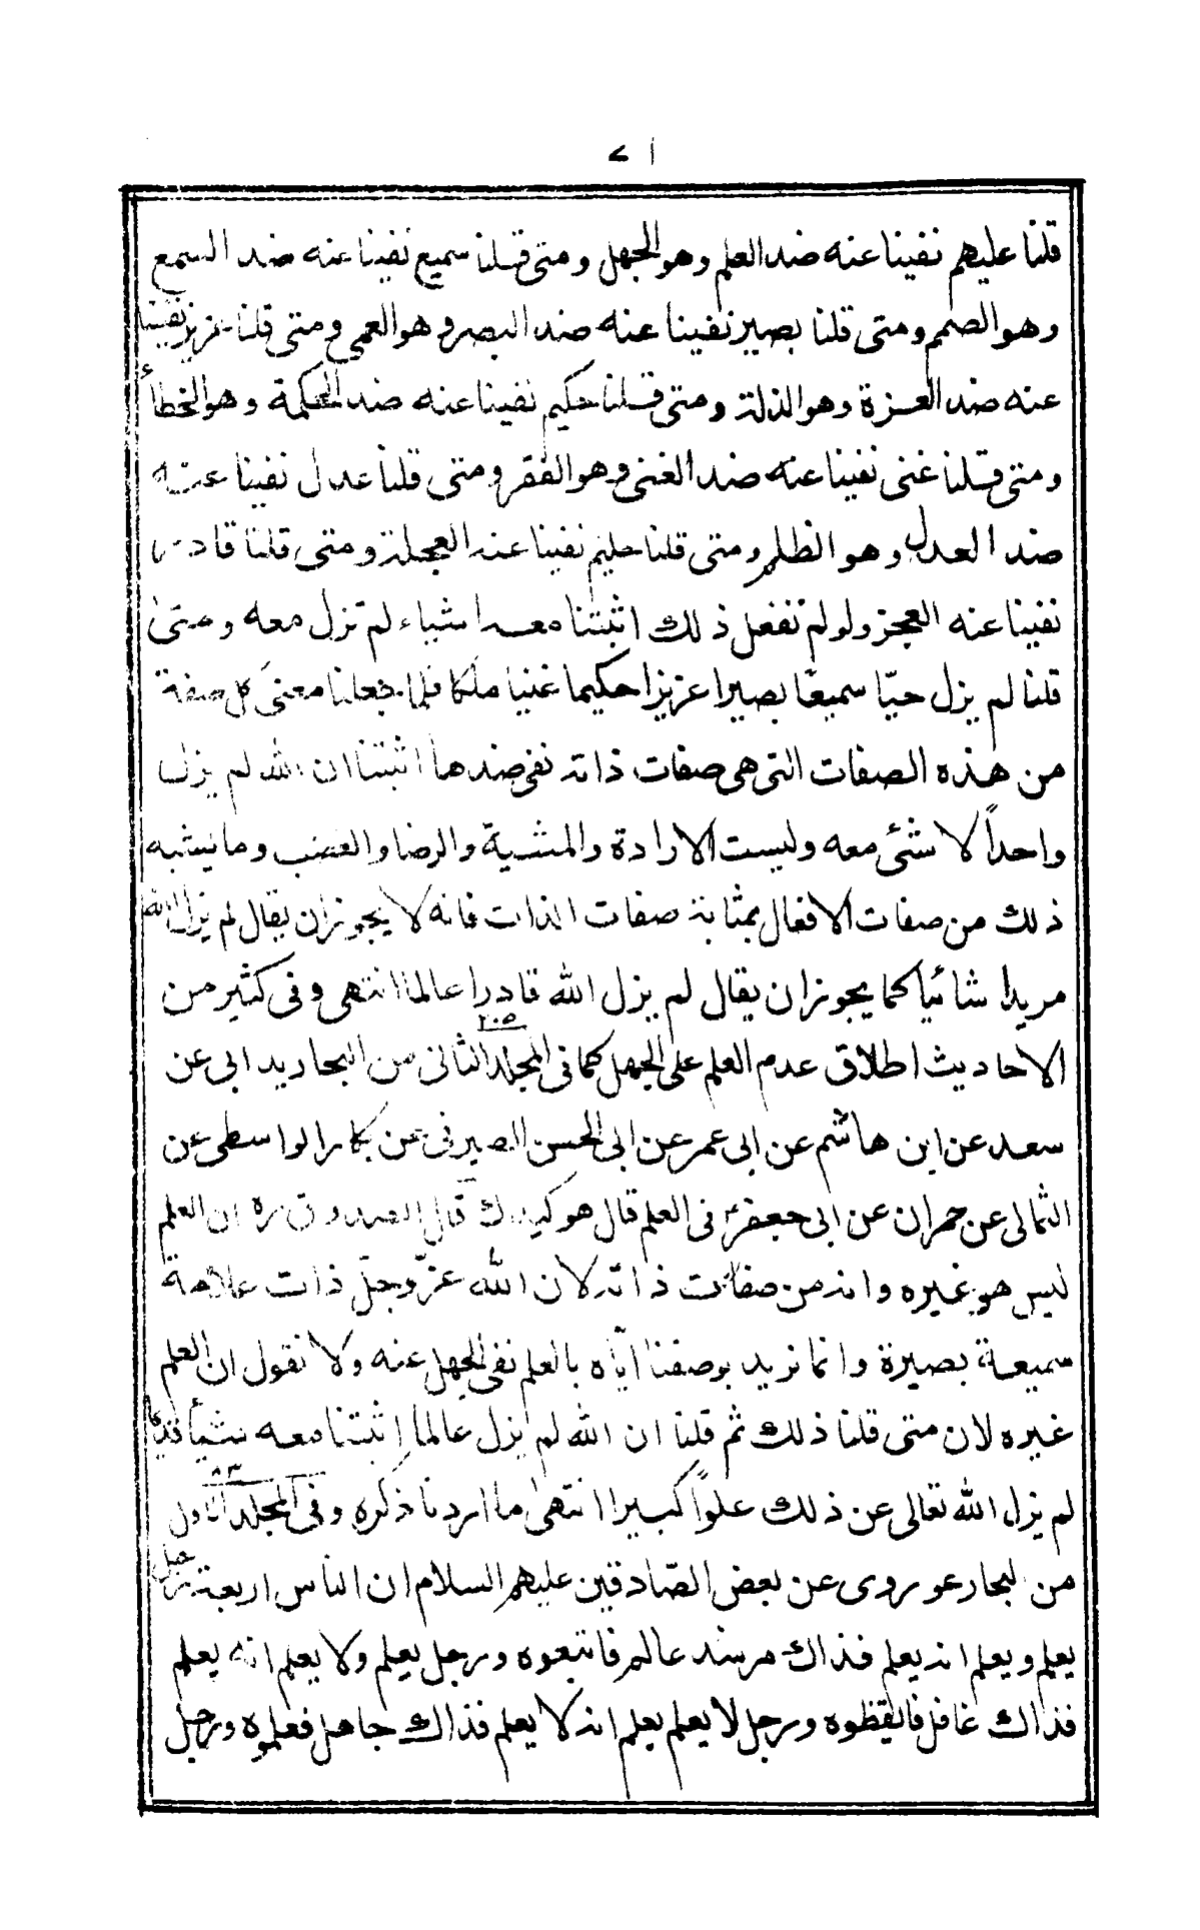 ٧١
قلنا عليهم نفينا عنه ضد العلم وهو الجهل ومتى قلنا سميع نفينا عنه ضد السمع
وهو الصمم ومتى قلنا بصير نفينا عنه ضد البصر وهو العمى ومتى قلنا عزيز نفينا
عنه ضد العزة وهو الذلة ومتى قلنا حكيم نفينا عنه ضد الحكمة وهو الخطأ
ومتى قلنا غنى نفينا عنه ضد الغنى وهو الفقر ومتى قلنا عدل نفينا عنه
ضد العدل وهو الظلم ومتى قلنا حليم نفينا عنه العجلة ومتى قلنا قادر
نفينا عنه العجز ولو لم نفعل ذلك اثبتنا معه اشياء لم تزل معه ومتى
قلنا لم يزل حيّا سميعًا بصيرا عزيزا حكيما غنيا ملكا فلما جعلنا معنى كل صفة
من هذه الصفات التى هى صفات ذاته نفى ضدها اثبتنا ان الله لم يزل
واحداً لا شئ معه وليست الارادة والمشية والرضا والغضب وما يشبه
ذلك من صفات الافعال بمثابة صفات الذات فانه لا يجوز ان يقال لم يزل الله
مريدا شائيا كما يجوز ان يقال لم يزل الله قادرا عالما انتهى وفى كثير من
الاحاديث اطلاق عدم العلم على الجهل كما فى المجلد الثانى من البحار يد ابى عن
سعد عن ابن هاشم عن ابى عمر عن ابى الحسن الصيرفى عن بكار الواسطى عن
الثمالى عن حمران عن ابى جعفر فى العلم قال هو كيدك قال الصدوق ره ان العلم
ليس هو غيره وانه من صفات ذاته لان الله عزّ وجلّ ذات علامة
سميعة بصيرة وانما نريد بوصفنا ايّاه بالعلم نفى الجهل عنه ولا نقول ان العلم
غيره لان متى قلنا ذلك ثم قلنا ان الله لم يزل عالما اثبتنا معه شيأ قديما
لم يزل الله تعالى عن ذلك علواً كبيرا انتهى ما اردنا ذكره وفى المجلد الاول
من البحار عو روى عن بعض الصّادقين عليهم السلام ان الناس اربعة رجل
يعلم ويعلم انه يعلم فذاك مرشد عالم فاتبعوه ورجل يعلم ولا يعلم انه يعلم
فذاك غافل فايقظوه ورجل لا يعلم يعلم انه لا يعلم فذاك جاهل فعلموه ورجل